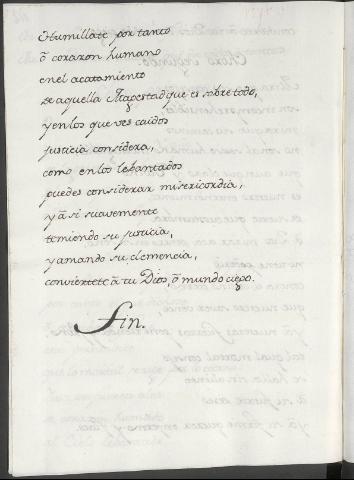 Humillate por tanto
ô corazon humano
en el acatamiento
de aquella Magestad que es sobre todo,
y en los que ves caidos
justicia considera,
como en los lebantados
puedes considerar misericordia,
y âsi suavemente
temiendo su justicia,
y amando su clemencia,
conviertete â tu Dios, ô mundo ciego.
Fin.